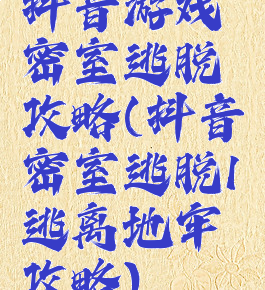 抖音游戏
密室逃脱
攻略(抖音
密室逃脱1
逃离地牢
攻略)